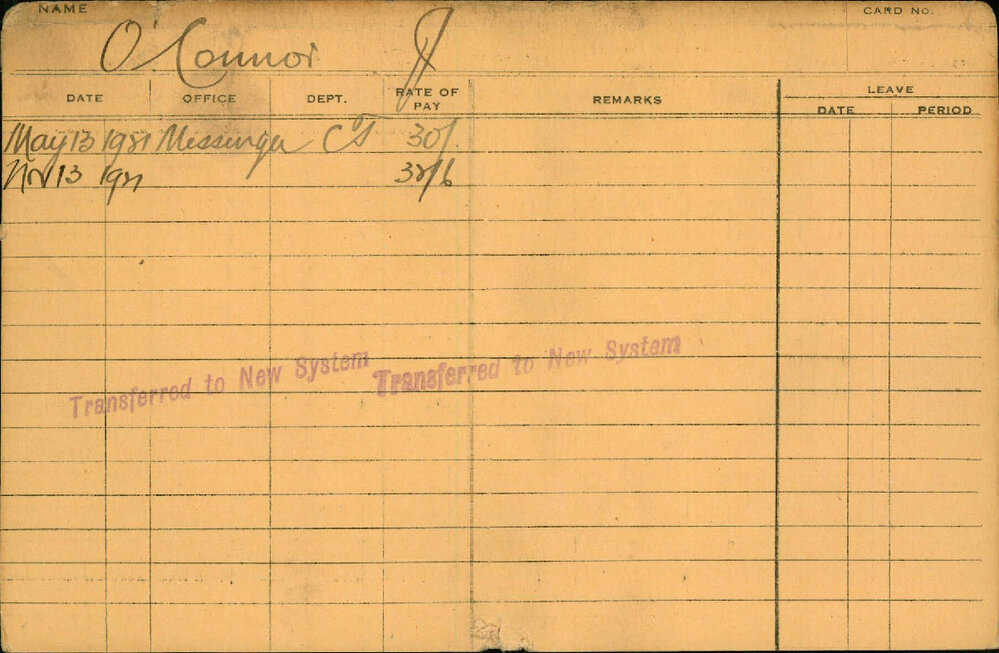 NAME CARD NO.
O'Connor J
DATE OFFICE DEPT. RATE OF PAY REMARKS LEAVE
DATE PERIOD
May 13 1921 Messenger CT 30/.
Nov 13 1921 32/6
Transferred to New System Transferred to New System